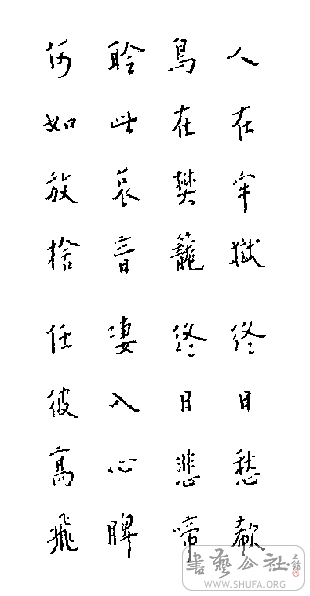 人在牢獄終日愁欷
鳥在樊籠終日悲啼
聆此哀音凄入心脾
何如放捨任彼高飛
書藝公社
WWW.SHUFA.ORG